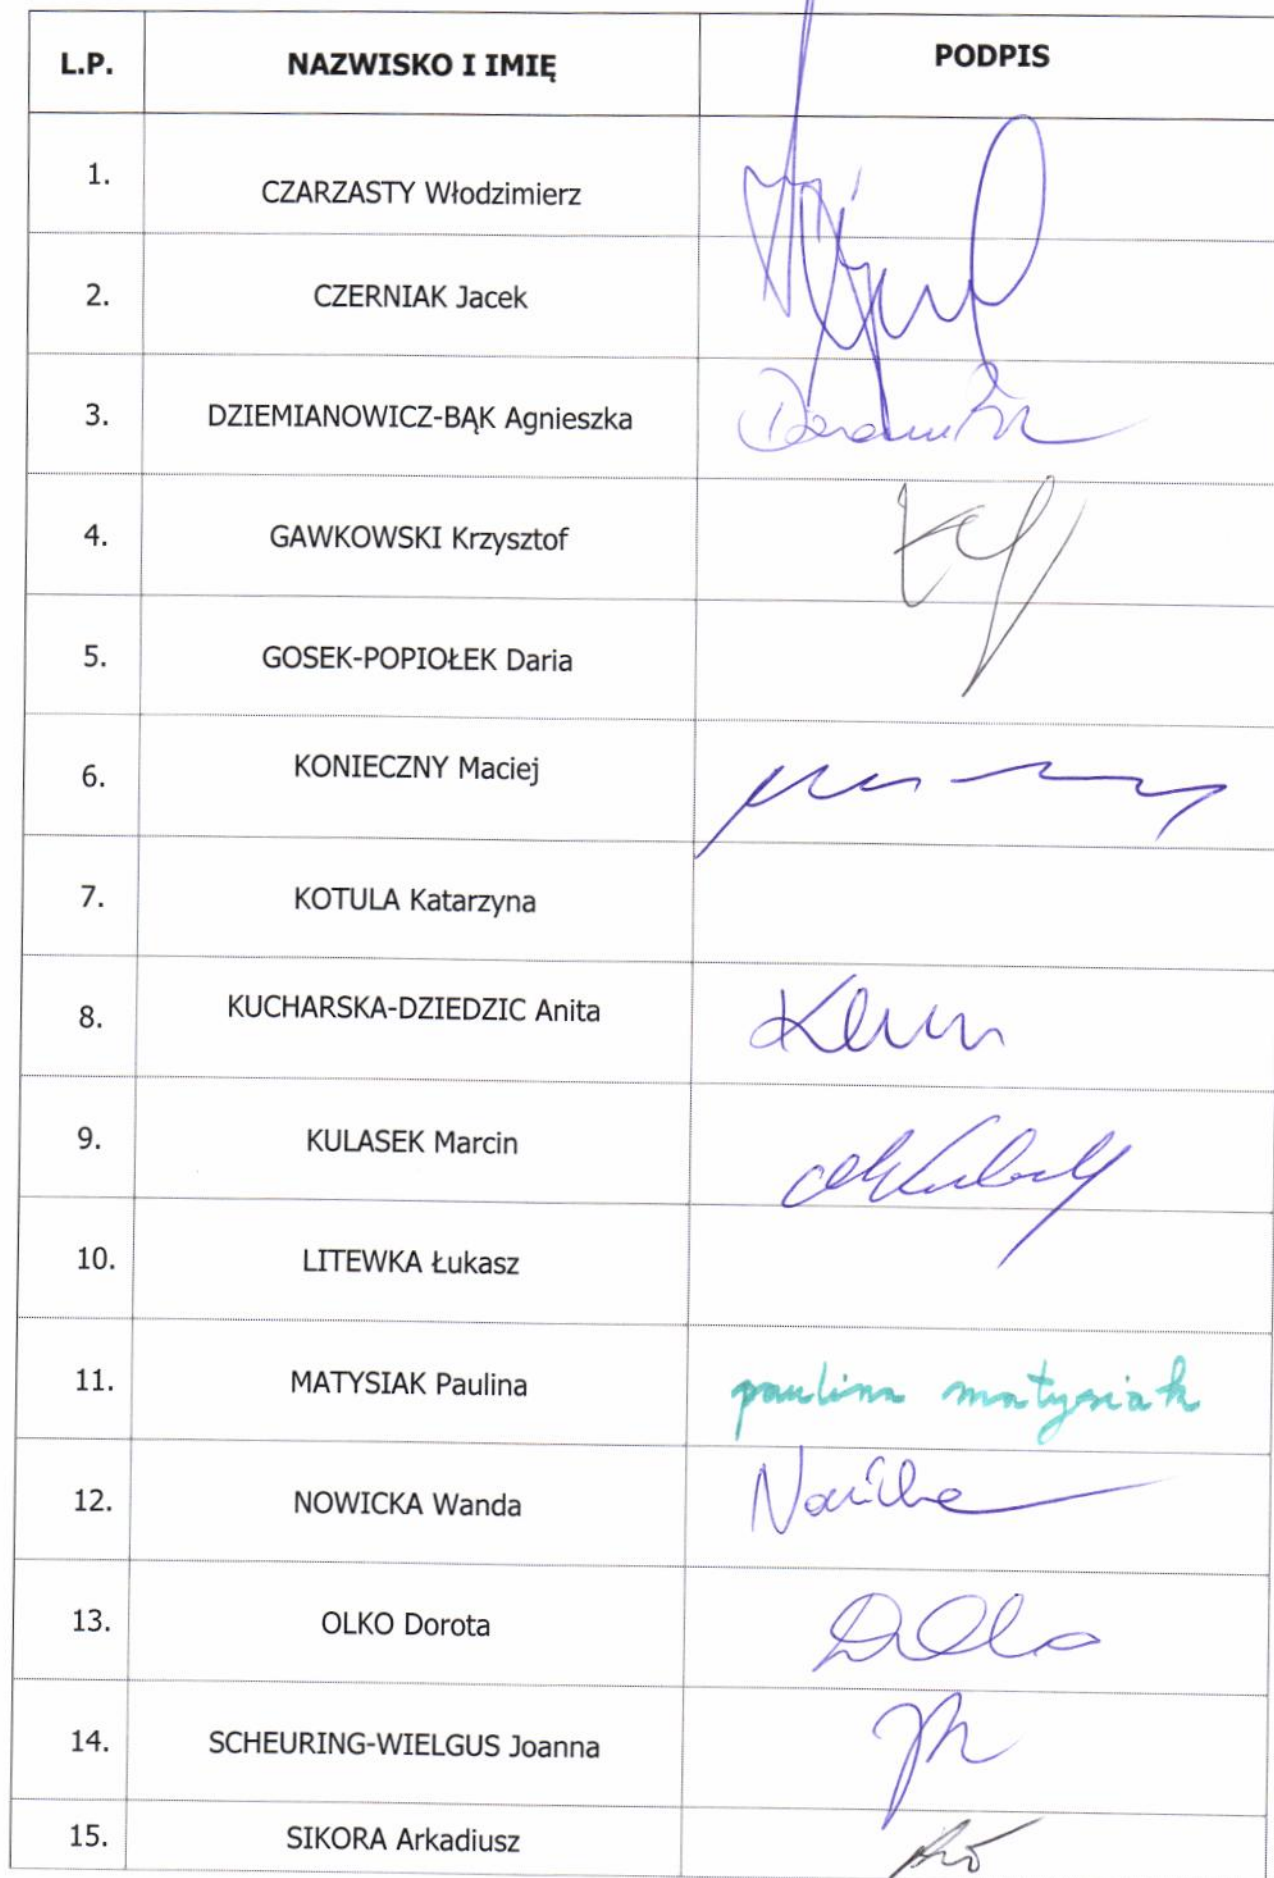 L.P. NAZWISKO I IMIĘ PODPIS
1. CZARZASTY Włodzimierz
2. CZERNIAK Jacek
3. DZIEMIANOWICZ-BĄK Agnieszka
4. GAWKOWSKI Krzysztof
5. GOSEK-POPIOŁEK Daria
6. KONIECZNY Maciej
7. KOTULA Katarzyna
8. KUCHARSKA-DZIEDZIC Anita
9. KULASEK Marcin
10. LITEWKA Łukasz
11. MATYSIAK Paulina paulina matysiak
12. NOWICKA Wanda
13. OLKO Dorota
14. SCHEURING-WIELGUS Joanna
15. SIKORA Arkadiusz